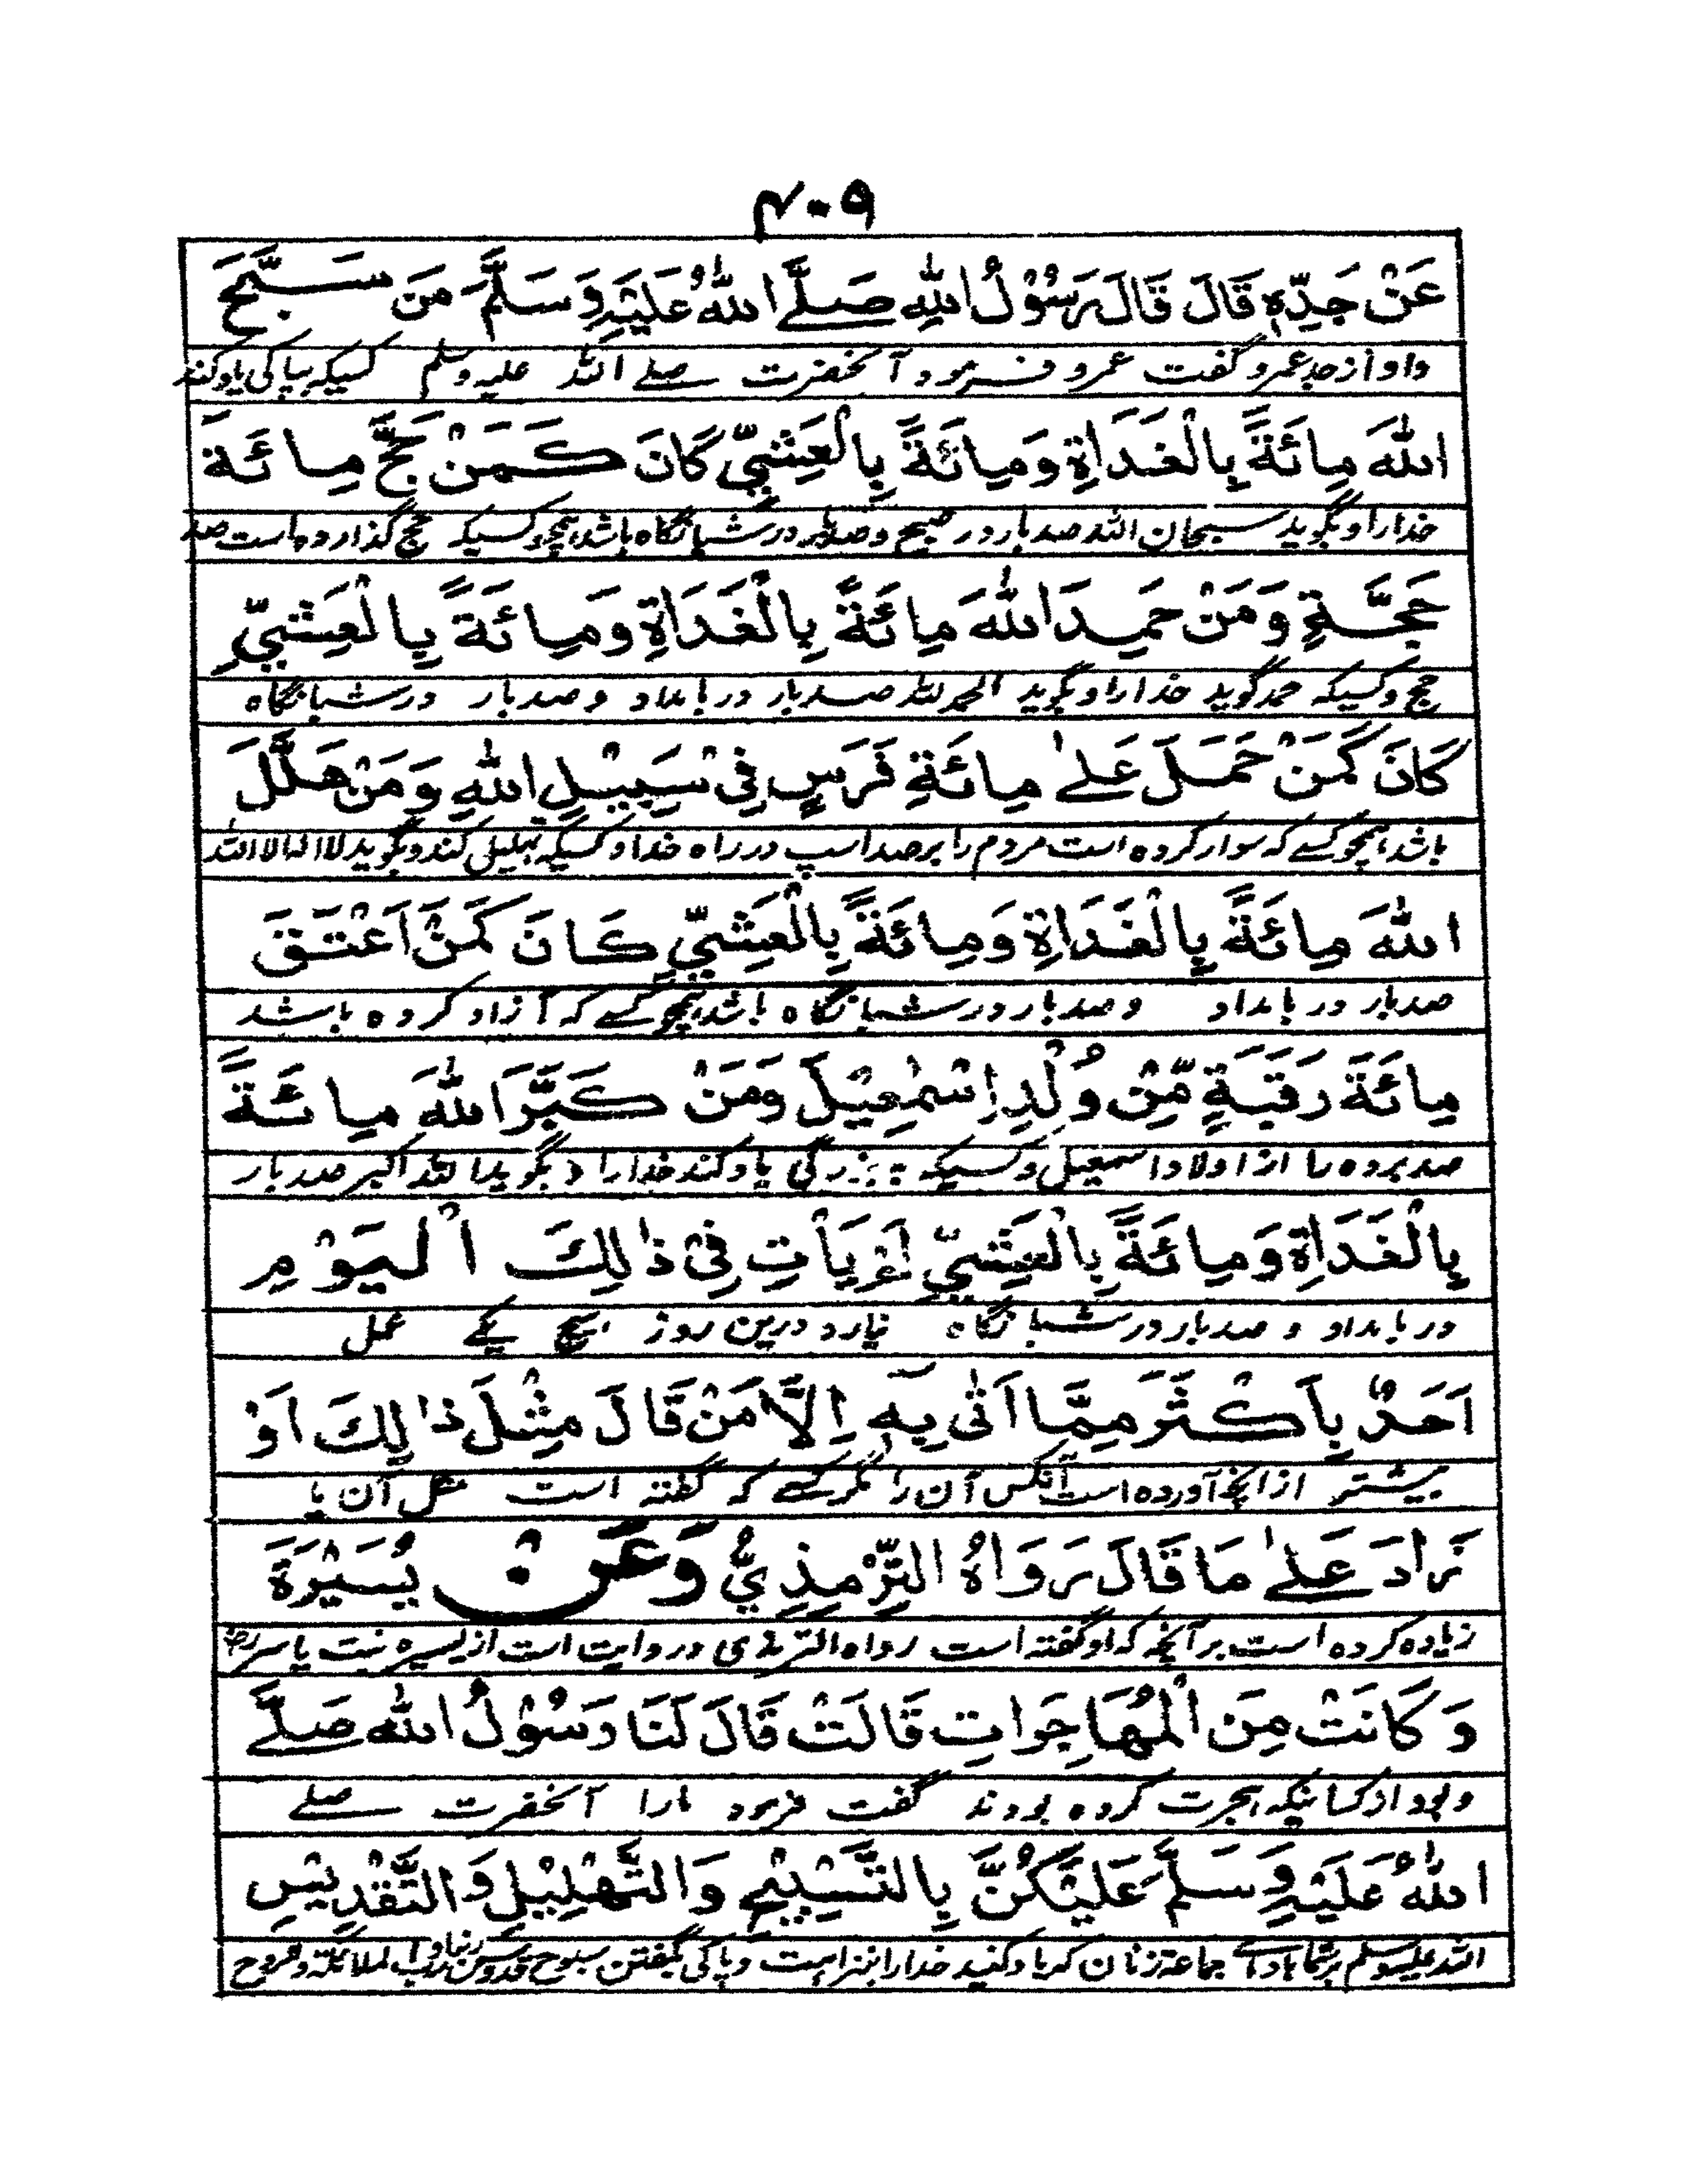 ۴۰۹
عَنْ جَدِّهٖ قَالَ قَالَ رَسُوْلُ اللّٰهِ صَلَّے اللّٰهُ عَلَيْهِ وَسَلَّمَ مَنْ سَبَّحَ
داو از جد عمرو گفت عمرو فرمود آنحضرت صلے اللہ علیہ وسلم کسیکہ بپاکی یاد کند
اللّٰهَ مِائَةً بِالْغَدَاةِ وَمِائَةً بِالْعَشِيِّ كَانَ كَمَنْ حَجَّ مِائَةَ
خدارا و بگوید سبحان اللہ صدبار در صبح و صدبار در شبانگاہ باشد ہمچو کسیکہ حج گذاردہ است صد
حَجَّةٍ وَمَنْ حَمِدَ اللّٰهَ مِائَةً بِالْغَدَاةِ وَمِائَةً بِالْعَشِيِّ
حج و کسیکہ حمد گوید خدارا و بگوید الحمد للہ صدبار در بامداد و صدبار در شبانگاہ
كَانَ كَمَنْ حَمَلَ عَلٰے مِائَةِ فَرَسٍ فِيْ سَبِيْلِ اللّٰهِ وَمَنْ هَلَّلَ
باشد ہمچو کسے کہ سوار کردہ است مردم را بر صد اسپ در راہ خدا و کسیکہ تہلیل کند و بگوید لا الہ الا اللہ
اللّٰهَ مِائَةً بِالْغَدَاةِ وَمِائَةً بِالْعَشِيِّ كَانَ كَمَنْ اَعْتَقَ
صدبار در بامداد و صدبار در شبانگاہ باشد ہمچو کسے کہ آزاد کردہ باشد
مِائَةَ رَقَبَةٍ مِّنْ وُلْدِ اِسْمٰعِيْلَ وَمَنْ كَبَّرَ اللّٰهَ مِائَةً
صد بردہ را از اولاد اسمعیل و کسیکہ بہ بزرگی یاد کند خدارا و بگوید اللہ اکبر صدبار
بِالْغَدَاةِ وَمِائَةً بِالْعَشِيِّ لَمْ يَأْتِ فِيْ ذٰلِكَ الْيَوْمِ
در بامداد و صدبار در شبانگاہ نیارد درین روز ہیچ یکے عمل
اَحَدٌ بِاَكْثَرَ مِمَّا اَتٰى بِهٖ اِلَّا مَنْ قَالَ مِثْلَ ذٰلِكَ اَوْ
بیشتر از آنچہ آوردہ است آنکس آن را مگر کسے کہ گفتہ است مثل آن یا
زَادَ عَلٰے مَا قَالَ رَوَاهُ التِّرْمِذِيُّ وَعَنْ يُسَيْرَةَ
زیادہ کردہ است بر آنچہ کہ او گفتہ است رواہ الترمذی و روایت است از یسیرہ بنت یاسر رض
وَكَانَتْ مِنَ الْمُهَاجِرَاتِ قَالَتْ قَالَ لَنَا رَسُوْلُ اللّٰهِ صَلَّے
و بود از کسانیکہ ہجرت کردہ بودند گفت فرمود مارا آنحضرت صلے
اللّٰهُ عَلَيْهِ وَسَلَّمَ عَلَيْكُنَّ بِالتَّسْبِيْحِ وَالتَّهْلِيْلِ وَالتَّقْدِيْسِ
اللہ علیہ وسلم بر شما باد اے جماعۃ زنان کہ یاد کنید خدارا و پاکی بگفتن سبوح قدوس ربنا و رب الملائکۃ و الروح